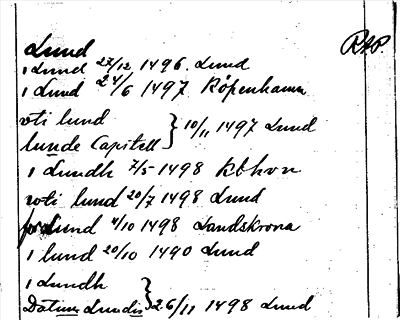 Lund
RAP
i Lund 27/12 1496. Lund
i Lund 24/6 1497 Köpenhamn
vti lund } 10/11 1497 Lund
lunde Capitell
i Lundh 7/5 1498 Kbhvn
vti lund 20/7 1498 Lund
for Lund 4/10 1498 Landskrona
i lund 20/10 1490 Lund
i Lundh
Datum Lundis } 26/11 1498 Lund